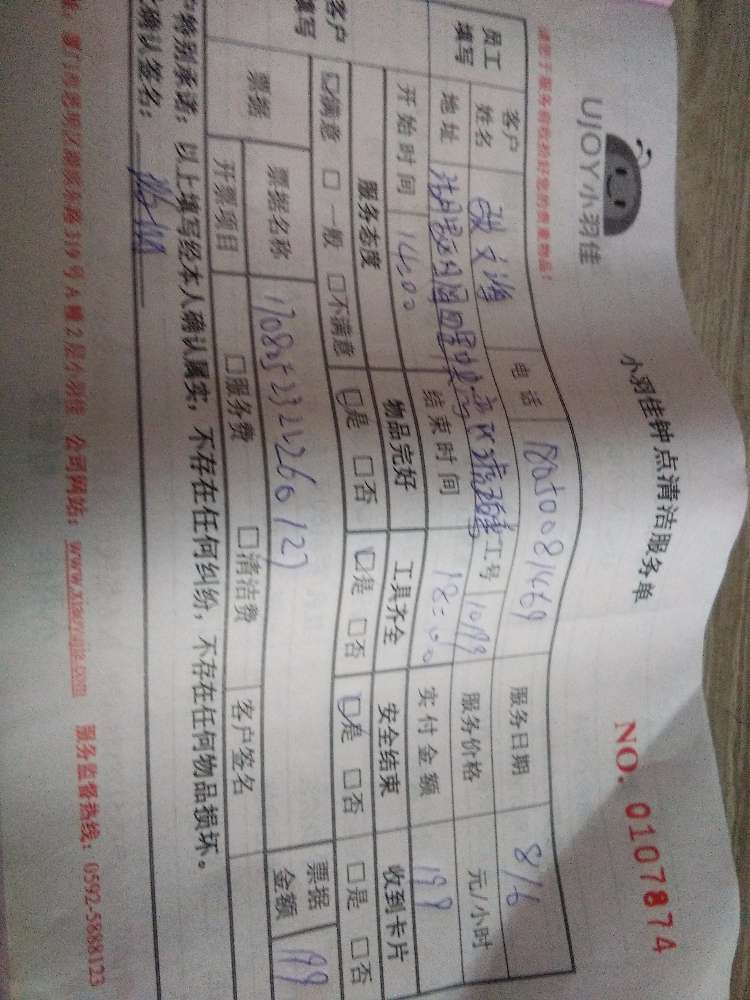 UJOY小羽佳
小羽佳钟点清洁服务单
NO. 0107874
请您于服务前收检好您的贵重物品!
员工填写
客户姓名
电话 18050081469
服务日期 8/6
地址
工号 1099
服务价格 元/小时
开始时间 14:00
结束时间 18:00
实付金额 199
客户填写
服务态度 物品完好 工具齐全 安全结束 收到卡片
☑满意 □一般 □不满意 ☑是 □否 ☑是 □否 ☑是 □否 □是 □否
票据
票据名称 票据金额 199
开票项目 □服务费 □清洁费 客户签名
户特别承诺:以上填写经本人确认属实,不存在任何纠纷,不存在任何物品损坏。
确认签名:
厦门市思明区 319号A幢2层小羽佳 公司网站:www.xiaoyujia.com 服务监督热线:0592-5888123